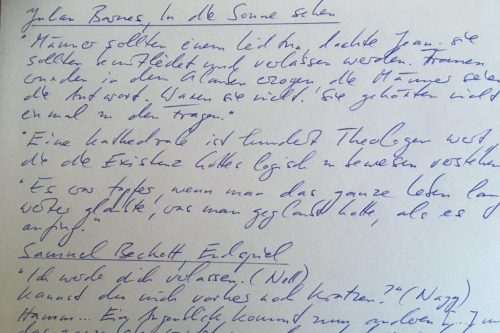 Julian Barnes, In die Sonne sehen
"Männer sollten einem leid tun, dachte Jean. sie
sollten und verlassen werden. Frauen
wurden in dem Glauben erzogen, die Männer seien
die Antwort. Waren sie nicht. Sie gehörten nicht
einmal zu den Fragen."
"Eine Kathedrale ist hundert Theologen wert
die die Existenz Gottes logisch zu beweisen verstehen
"Es war tapfer, wenn man das ganze Leben lang
weiter glaubte, was man geglaubt hatte, als es
anfing."
Samuel Beckett, Endspiel
"Ich werde dich verlassen. (Nell)
kannst du mich vorher noch kratzen?" (Nagg)
Hamm... Ein Augenblick kommt zum anderen